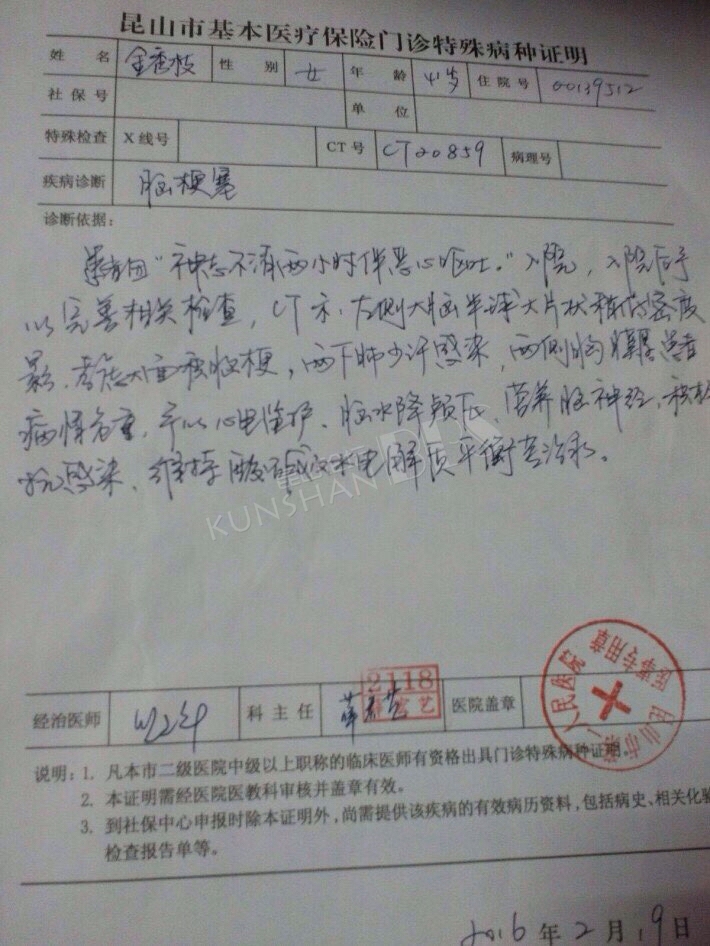 昆山市基本医疗保险门诊特殊病种证明
姓 名 金香枝 性 别 女 年 龄 41岁 住院号 00139512
社保号 单 位
特殊检查 X线号 CT号 CT20859 病理号
疾病诊断 脑梗塞
诊断依据：
患者因"神志不清两小时伴恶心呕吐。"入院，入院后予
以完善相关检查，CT示：左侧大脑半球大片状稍低密度
影，考虑大面积脑梗，两下肺少许感染，两侧胸膜 患者
病情危重，予以心电监护、脱水降颅压、营养脑神经、积极
抗感染、维持酸碱及水电解质平衡等治疗。
KUNSHAN
经治医师 科主任 2118 医院盖章
昆山市第一人民医院 医事专用章
说明：1. 凡本市二级医院中级以上职称的临床医师有资格出具门诊特殊病种证明。
2. 本证明需经医院医教科审核并盖章有效。
3. 到社保中心申报时除本证明外，尚需提供该疾病的有效病历资料，包括病史、相关化验
检查报告单等。
2016 年 2 月 19 日